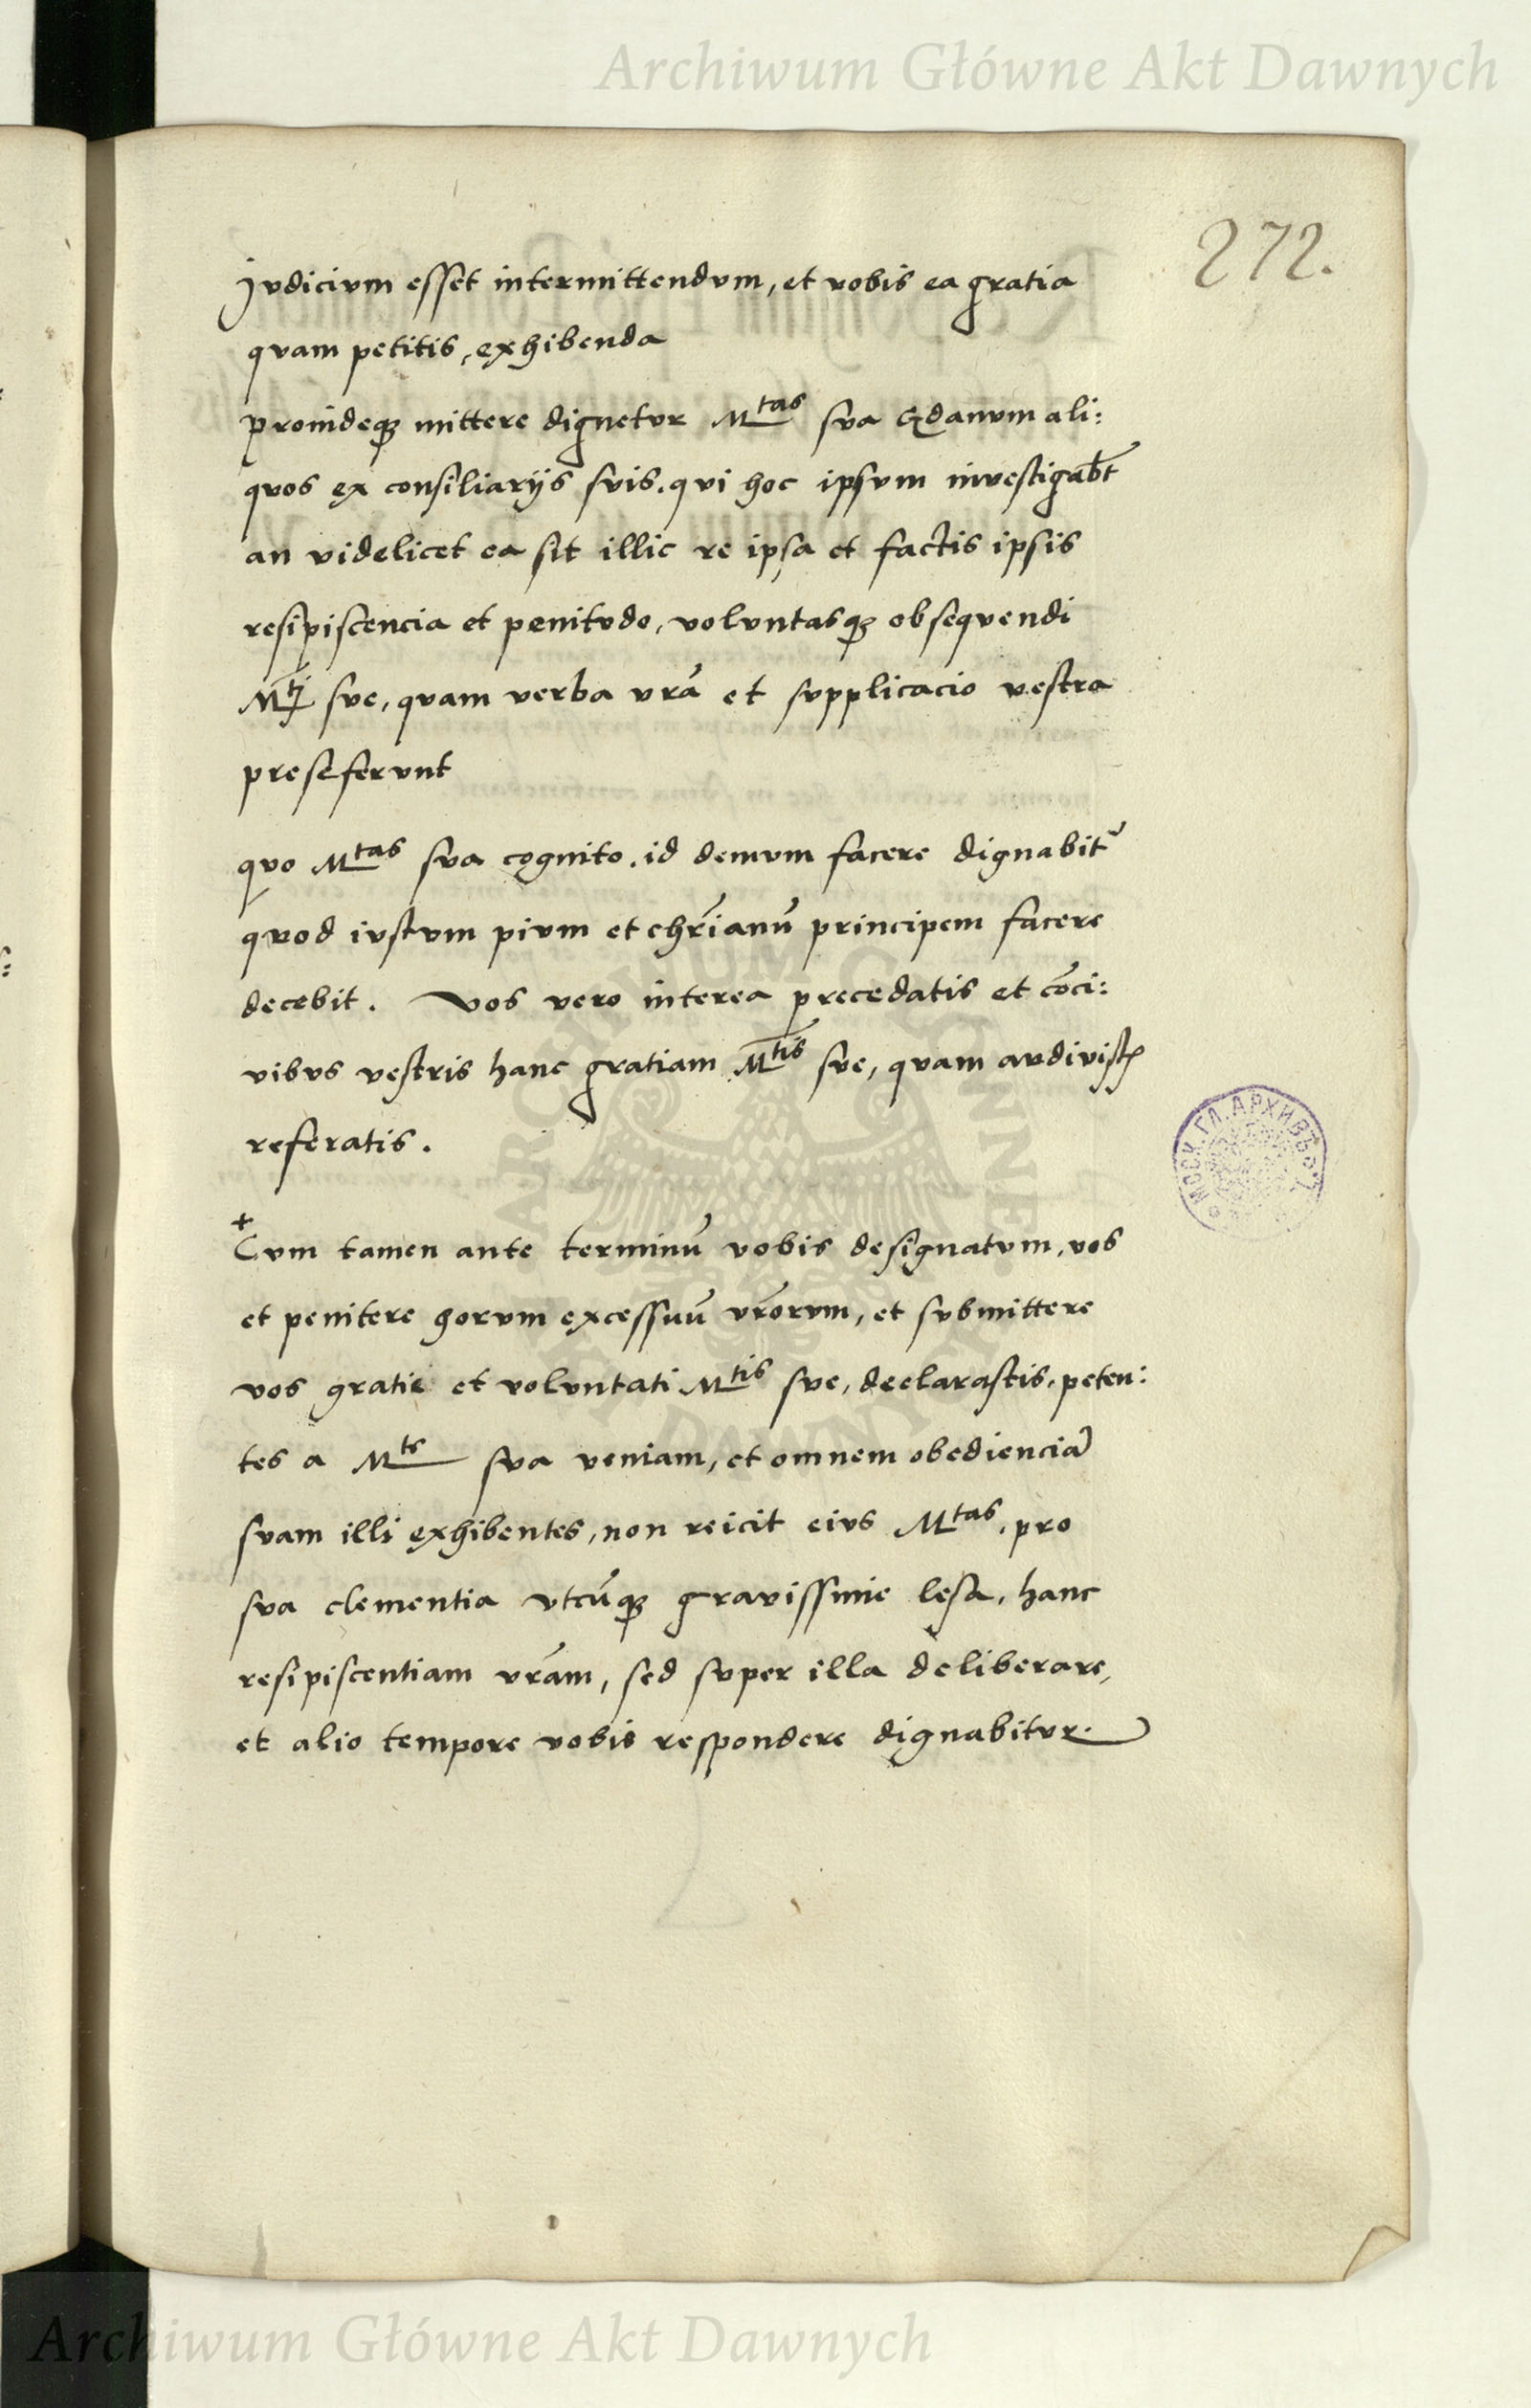 Archiwum Główne Akt Dawnych
272.
Judicium esset intermittendum, et vobis ea gratia
quam petitis, exhibenda
proindeqȝ mittere dignetur Mtas sua Gdanum ali:
quos ex consiliarijs suis. qui hoc ipsum investigabt̄
an videlicet ea sit illic re ipsa et factis ipsis
resipiscencia et penitudo, voluntasqȝ obsequendi
Mti sue, quam verba vr̄a et supplicacio vestra
preseferunt
quo Mtas sua cognito. id demum facere dignabit᷑
quod iustum pium et chr̄ianū principem facere
decebit. Vos vero interea precedatis et cōci:
vibus vestris hanc gratiam Mtis sue, quam audivistꝭ
referatis.
+
Cum tamen ante terminū vobis designatum, vos
et penitere horum excessuū vr̄orum, et submittere
vos gratie et voluntati Mtis sue, declarastis, peten:
tes a Mte sua veniam, et omnem obedienciā
suam illi exhibentes, non reicit eius Mtas, pro
sua clementia utcūqȝ gravissime lesa, hanc
resipiscentiam vr̄am, sed super illa deliberare,
et alio tempore vobis respondere dignabitur.
МОСК. ГЛ. АРХИВЪ
ARCHIWUM GŁÓWNE
AKT DAWNYCH
Archiwum Główne Akt Dawnych